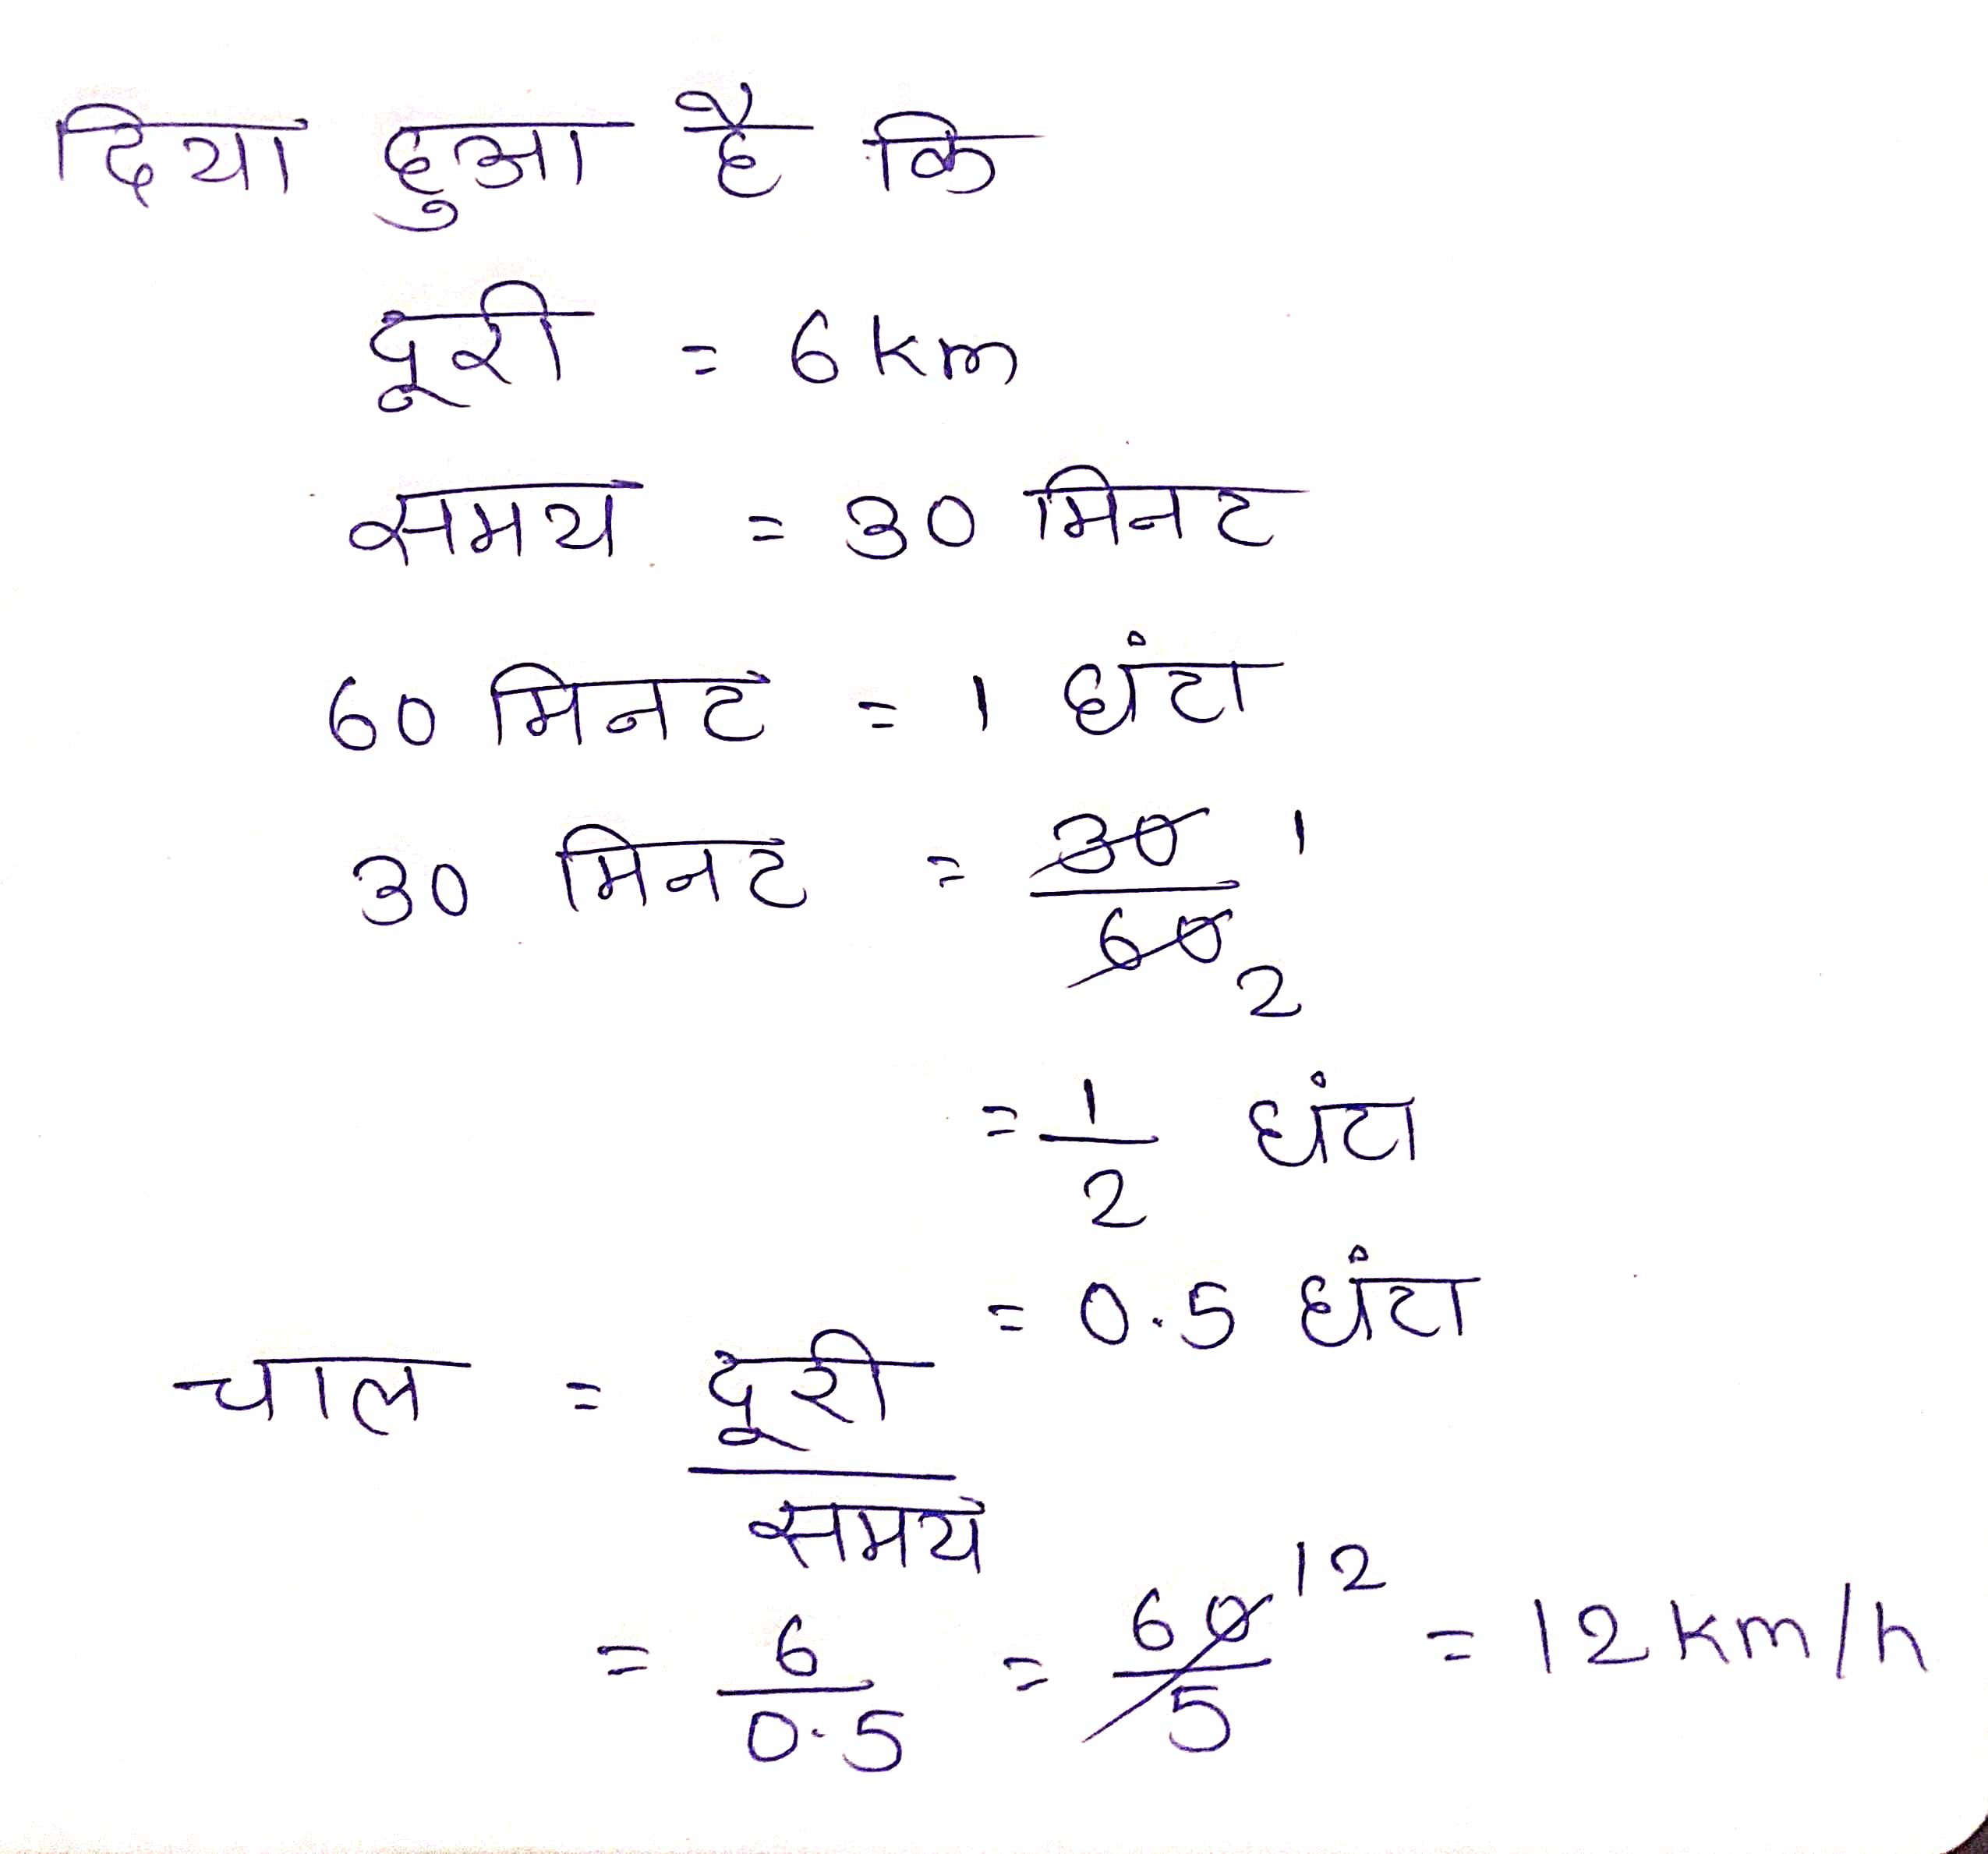 दिया हुआ है कि
दूरी = 6 km
समय = 30 मिनट
60 मिनट = 1 घंटा
30 मिनट = 30/60 1 2
= 1/2 घंटा
= 0.5 घंटा
चाल = दूरी/समय
= 6/0.5 = 60/5 12 = 12 km/h